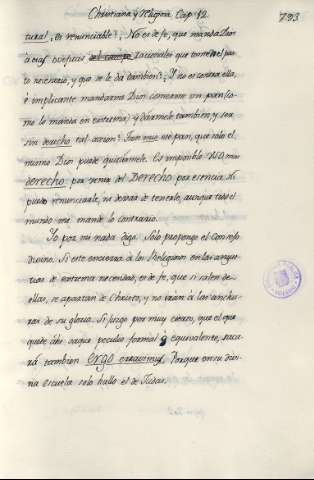 Christiana y Religiosa Cap. 12. 793
tural, es renunciable? No es de fe, que manda Dios
a sus ovejas racionales que tomen el pas
to necesario, y que se le da tambien? Y no es contra ella,
è implicante mandarme Dios comerme un pan (co
mo lo manda en extrema) y darmele tambien, y ser
sin derecho tal accion? Tan mio me pan, que solo el
mismo Dios puede quitarmele. Es imposible
derecho por venir del Derecho por esencia. Ni
puedo renunciarle, ni dexar de tenerle, aunque todo el
mundo me mande lo contrario.
Yo por mi nada digo. Solo propongo el Consejo
divino. Si este encierra à los Religiosos en las angus
tias de extrema necesidad, es de fe, que si salen de
ellas, se apartan de Christo, y no iràn à las anchu
ras de su gloria. Si juzgo por muy cierto, que el que
quite del saque peculio formal ò equivalente, saca
rà tambien Ergo erravimus. Porque en su divi
na escuela solo hallo el de Judas.